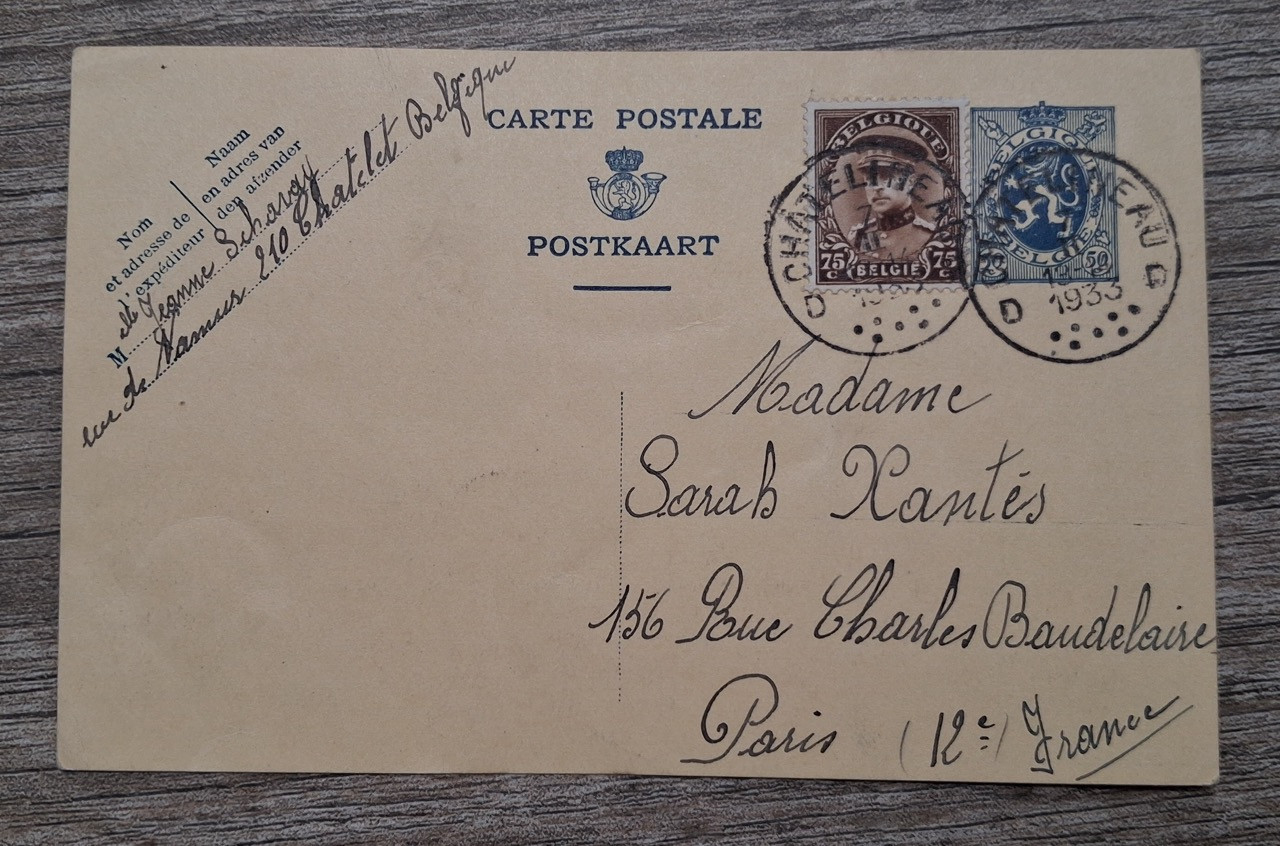 Nom
et adresse de
l'expéditeur
Naam
en adres van
den afzender
M elle Jeanne Schavay
rue de Namur 210 Chatelet Belgique
CARTE POSTALE
POSTKAART
BELGIQUE
75 C BELGIË 75 C
BELGIQUE
BELGIË
50
CHÂTELINEAU
D
1933
CHÂTELINEAU
D D
1933
Madame
Sarah Xantés
156 Rue Charles Baudelaire
Paris (12e) France